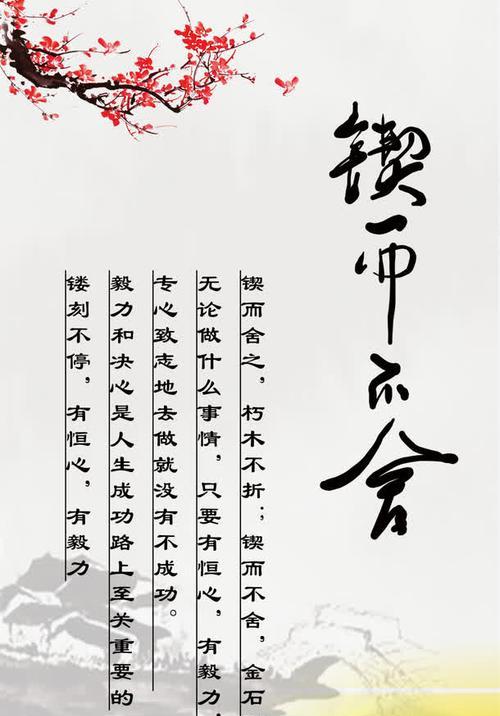 锲而不舍
锲而舍之，朽木不折；锲而不舍，金石
无论做什么事情，只要有恒心，有毅力，
专心致志地去做就没有不成功。
毅力和决心是人生成功路上至关重要的
镂刻不停，有恒心，有毅力